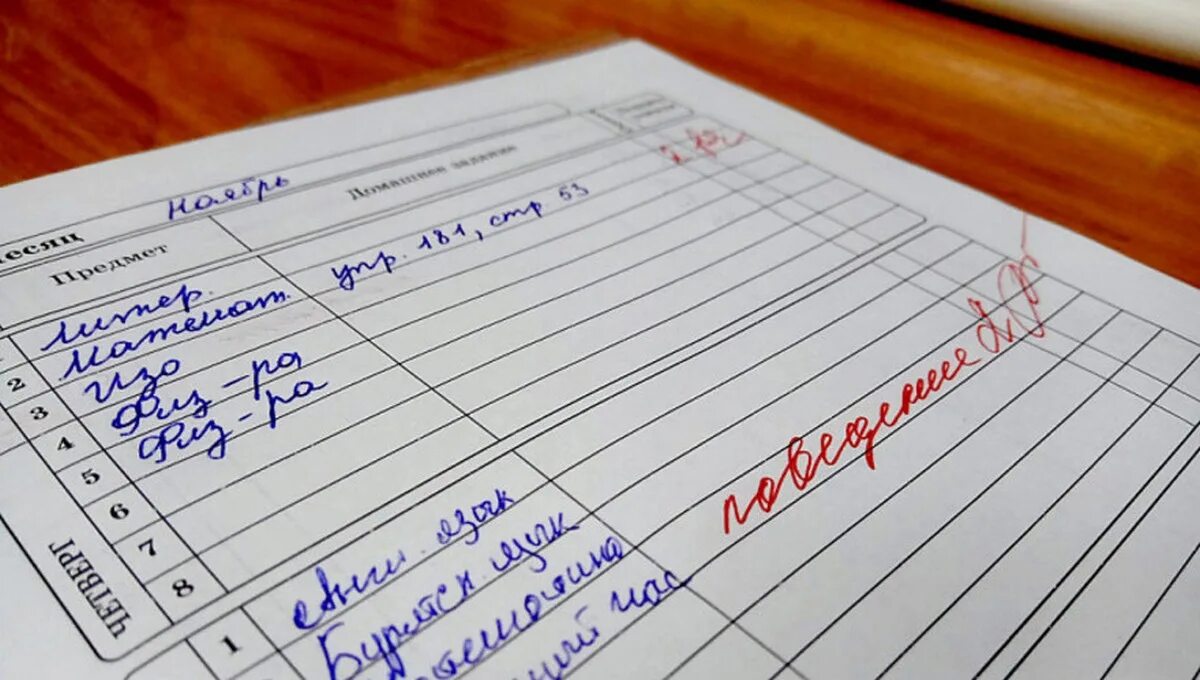 месяц ноябрь
Предмет Домашнее задание
литер.
2 математ. упр. 181, стр. 53
3 изо
4 Физ-ра
5 Физ-ра
6
7
8
ЧЕТВЕРГ
поведение
1 Англ. язык
Бурятск. язык